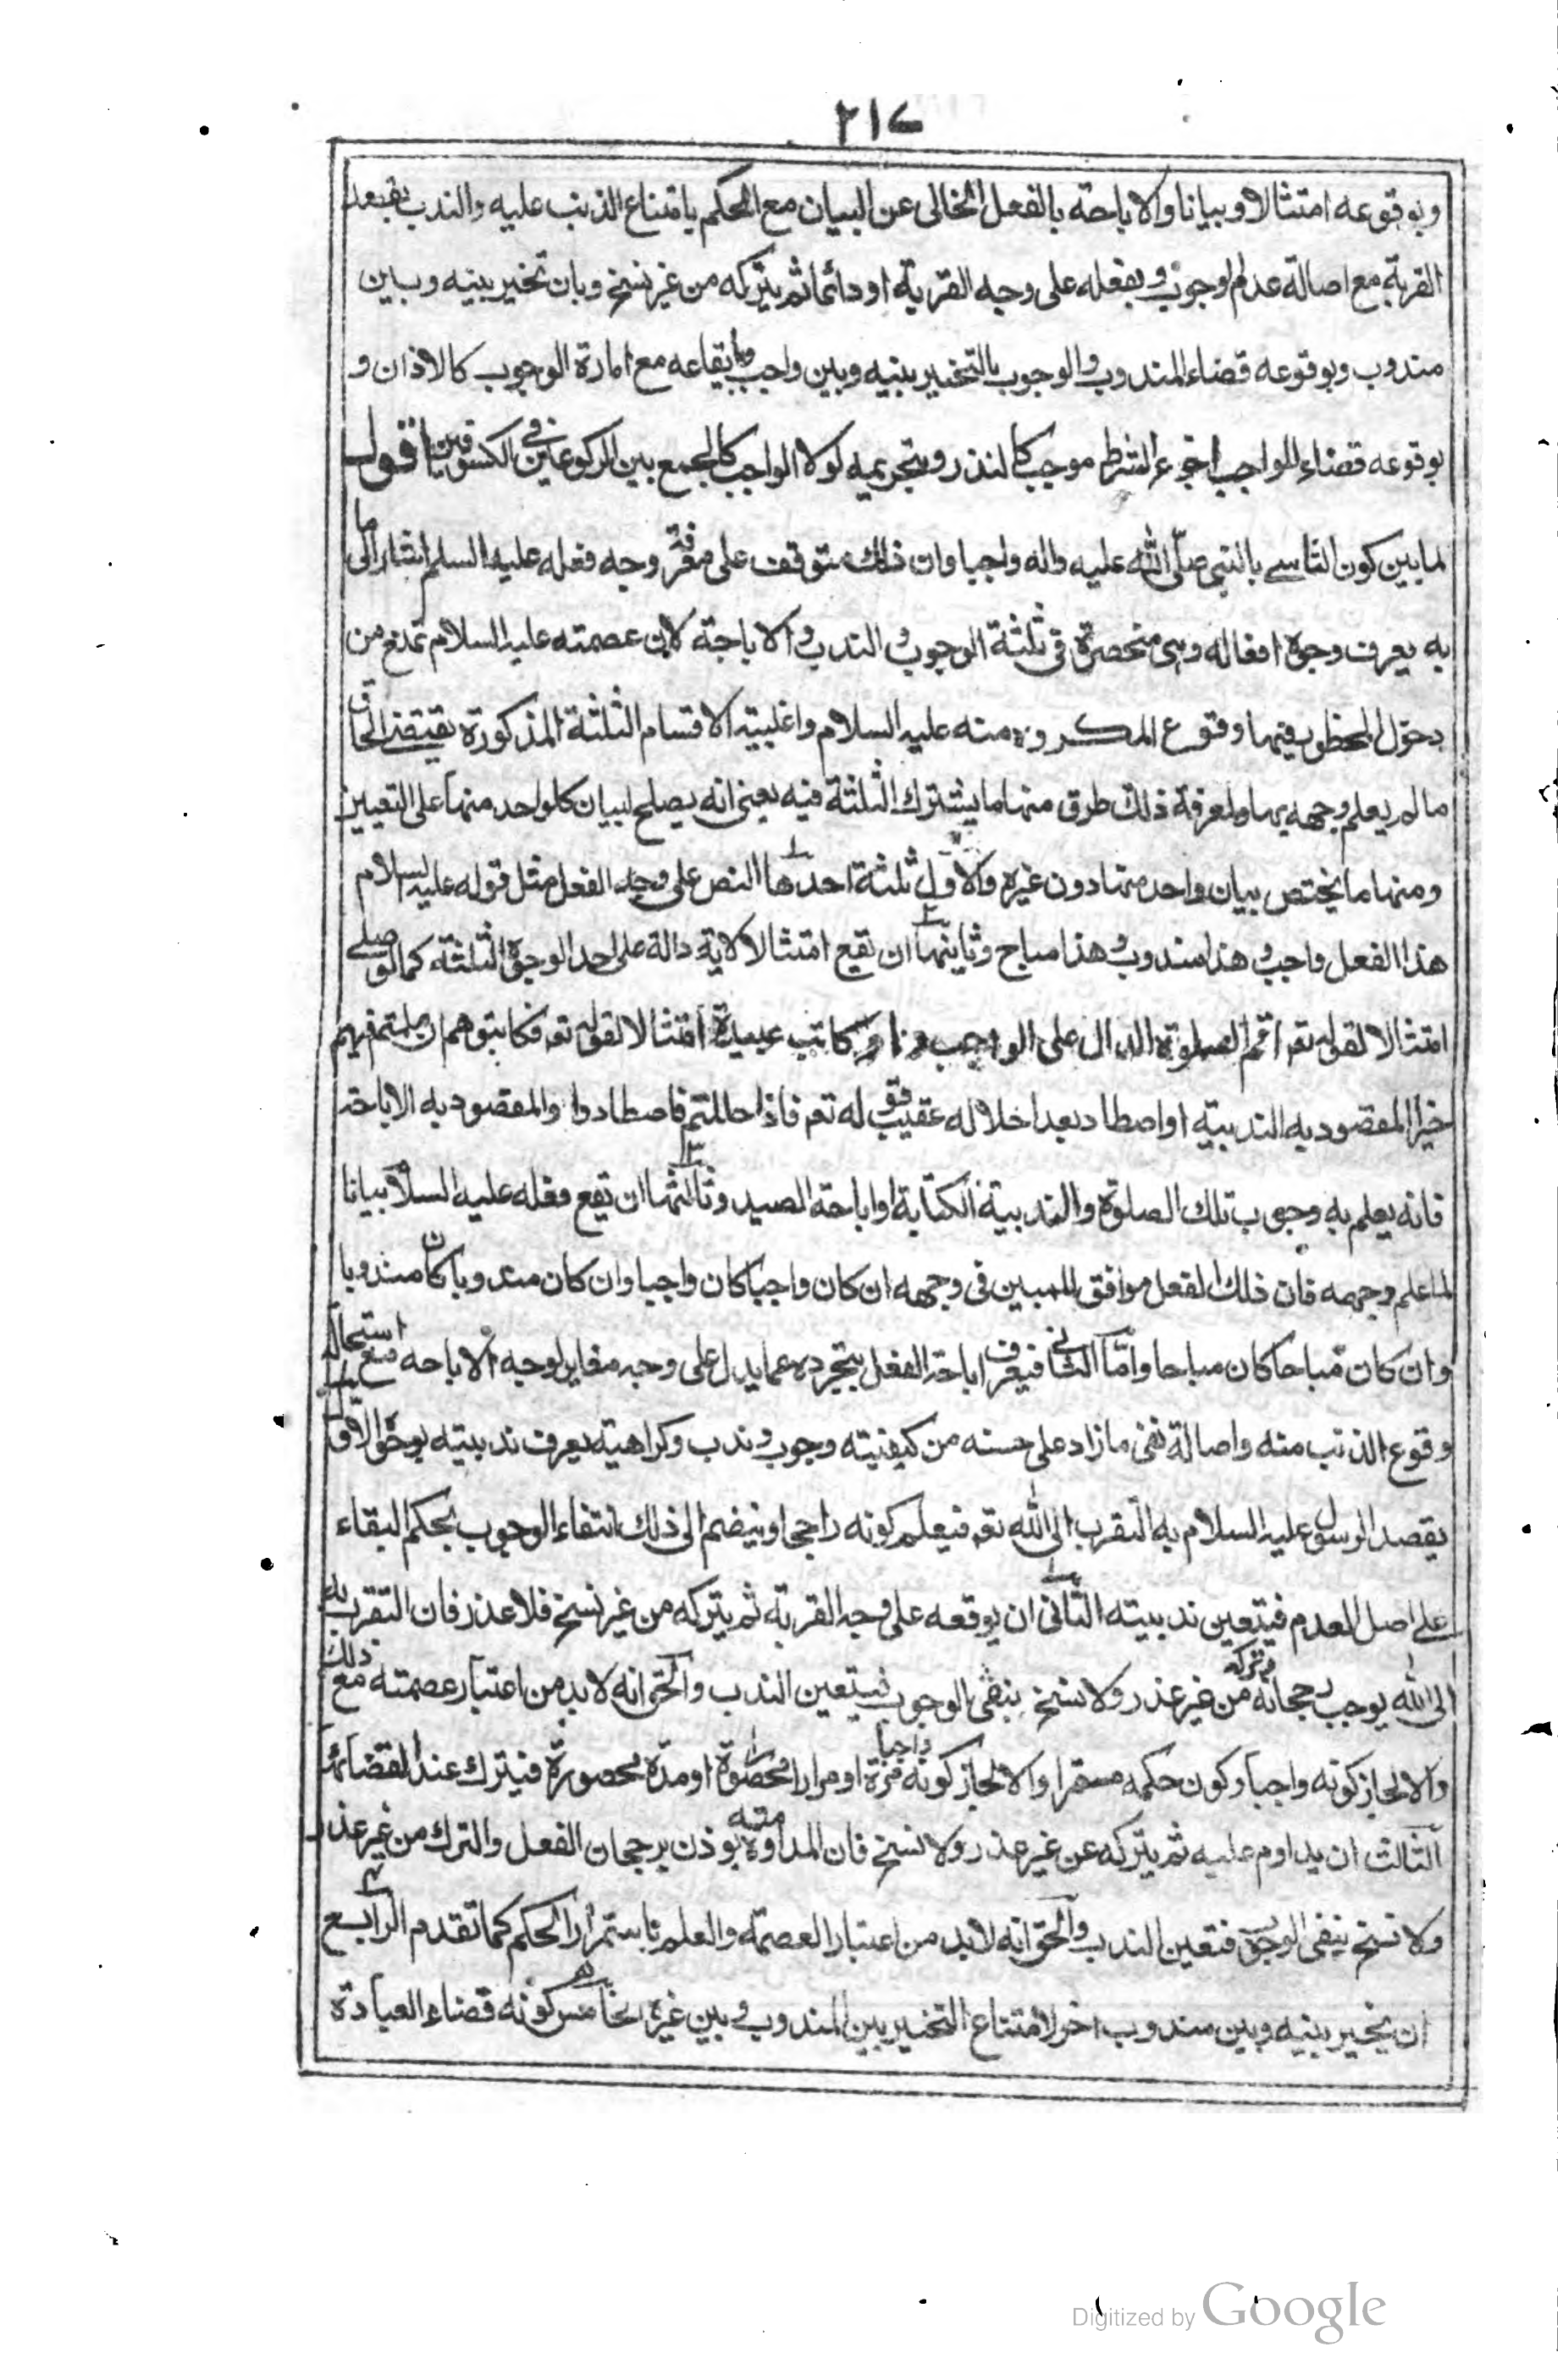 ٢١٧
وبوقوعه امتثالا وبيانا والاباحة بالفعل الخالى عن البيان مع الحكم بامتناع الذنب عليه والندب بقصد
القربة مع اصالة عدم الوجوب وبفعله على وجه القربة او دائما ثم يتركه من غير نسخ وبان تخير بينه وبين
مندوب وبوقوعه قضاء المندوب والوجوب بالتخيير بينه وبين واجب وبايقاعه مع امارة الوجوب كالاذان و
بوقوعه قضاء للواجب الشرط موجب كالنذر وبتحريمه لولا الواجب كالجمع بين الركوعين فى الكسوفين اقول
لما بين كون التأسى بالنبى صلى الله عليه واله واجبا وان ذلك متوقف على معرفة وجه فعله عليه السلم اشار الى ما
به يعرف وجوه افعاله وهى منحصرة فى ثلثة الوجوب والندب والاباحة لان عصمته عليه السلام تمنع من
دخول المحظور فيها ووقوع المكروه منه عليه السلام واغلبية الاقسام الثلثة المذكورة يقتضى الحاق
ما لم يعلم وجهه بها ولمعرفة ذلك طرق منها ما يشترك الثلثة فيه يعنى انه يصلح لبيان كل واحد منها على التعيين
ومنها ما يختص ببيان واحد منها دون غيره والاول ثلثة احدها النص على وجه الفعل مثل قوله عليه السلام
هذا الفعل واجب وهذا مندوب وهذا مباح وثانيها ان تقع امتثالا لاية دالة على احد الوجوه الثلثة كما لو صلى
امتثالا لقوله تعه اقم الصلوة الدال على الوجوب او كاتب عبيده امتثالا لقوله تعه فكاتبوهم ان علمتم فيهم
خيرا المقصود به الندبية او اصطاد بعد احلاله عقيب قوله تعه فاذا حللتم فاصطادوا والمقصود به الاباحة
فانه يعلم به وجوب تلك الصلوة والندبية الكتابة او اباحة الصيد وثالثها ان يقع فعله عليه السلام بيانا
لما علم وجهه فان ذلك الفعل موافق للمبين فى وجهه ان كان واجبا كان واجبا وان كان مندوبا كان مندوبا
وان كان مباحا كان مباحا واما الثانى فيعرف اباحة الفعل بتجرده عما يدل على وجه مغاير لوجه الاباحه مع استحالة
وقوع الذنب منه واصالة نفى ما زاد على حسنه من كيفيته وجوب وندب وكراهية يعرف ندبيته بوجوه الاول
يقصد الرسول عليه السلام به التقرب الى الله تعه فيعلم كونه راجحا وينضم الى ذلك انتفاء الوجوب بحكم البقاء
على اصل العدم فيتعين ندبيته الثانى ان يوقعه على وجه القربة ثم يتركه من غير نسخ فلا عذر فان التقرب به
الى الله يوجب رجحانه وتركه من غير عذر ولا نسخ ينفى الوجوب فيتعين الندب والحق انه لا بد من اعتبار عصمته مع ذلك
والا لجاز كونه واجبا وكون حكمه مستمرا والا لجاز كونه واجبا مرة او مرارا محصورة او مدة محصورة فيترك عند انقضائها
الثالث ان يداوم عليه ثم يتركه عن غير عذر ولا نسخ فان المداومة منه يوذن برجحان الفعل والترك من غير عذر
ولا نسخ ينفى الوجوب فتعين الندب والحق انه لا بد من اعتبار العصمة والعلم باستمرار الحكم كما تقدم الرابع
ان يخير بينه وبين مندوب اخر لامتناع التخيير بين المندوب وبين غيره الخامس كونه قضاء العبادة
Digitized by Google